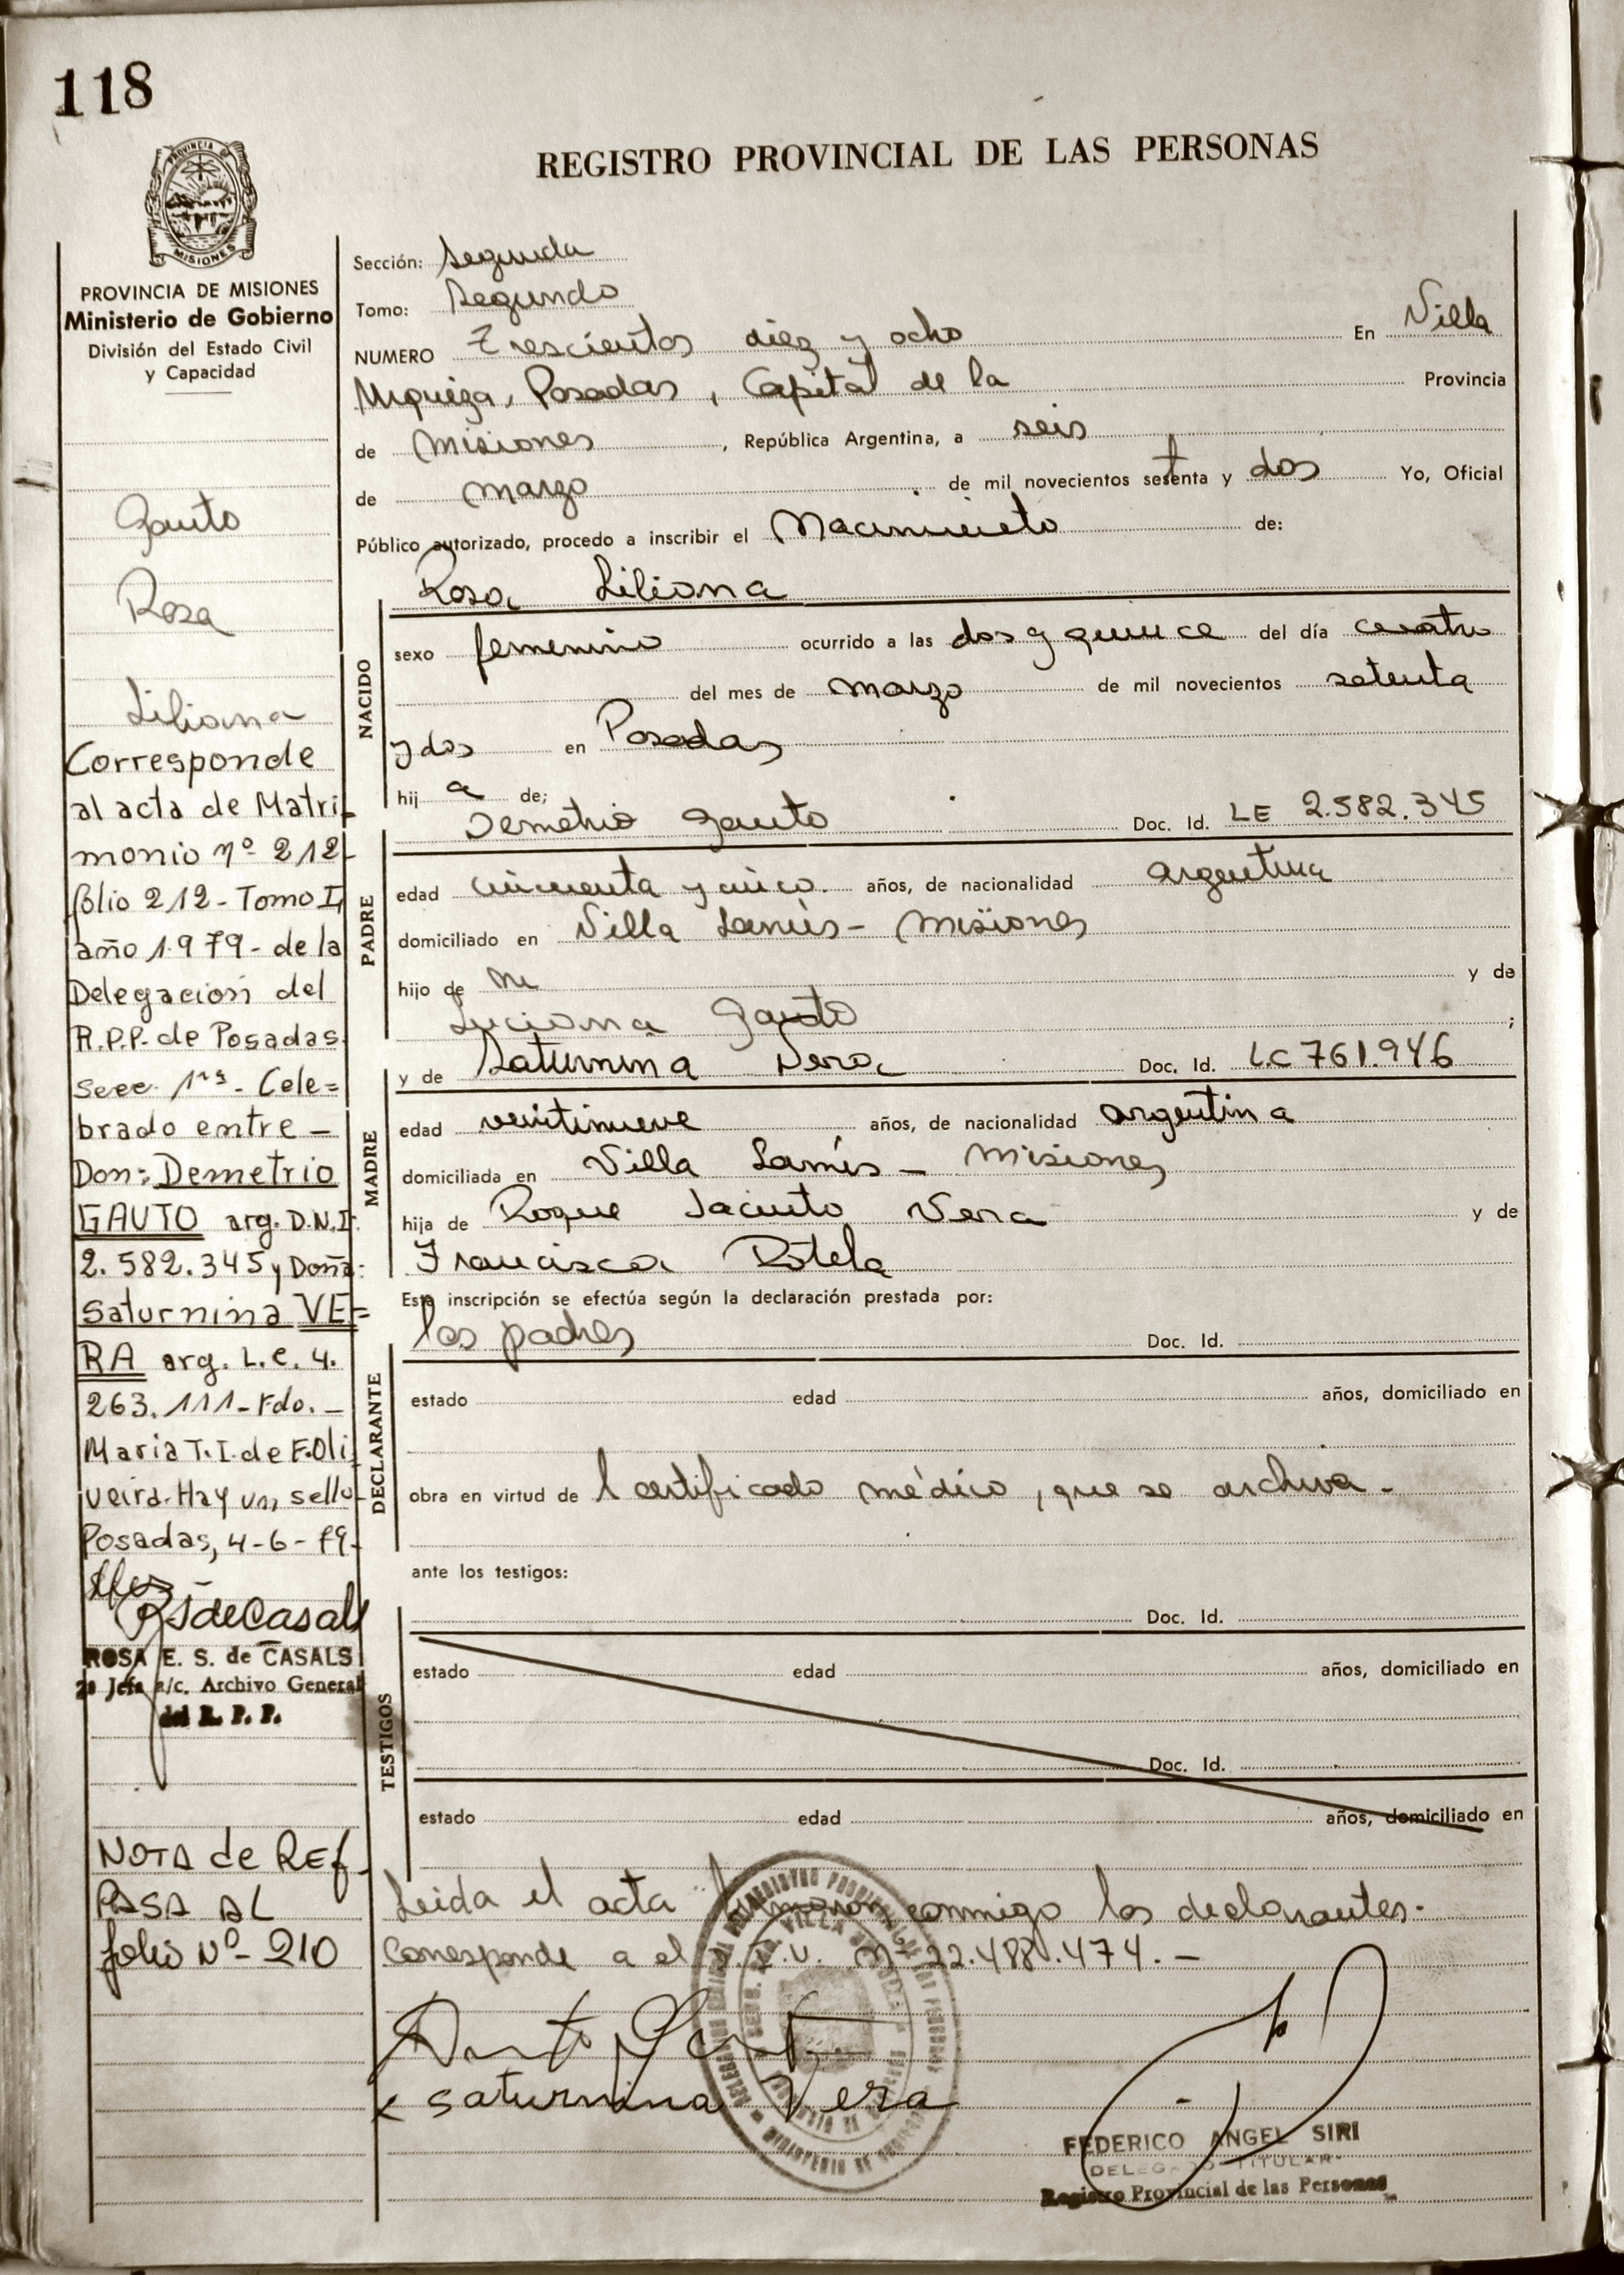 118
REGISTRO PROVINCIAL DE LAS PERSONAS
PROVINCIA DE MISIONES
PROVINCIA DE MISIONES
Ministerio de Gobierno
División del Estado Civil
y Capacidad
Gauto
Rosa
Liliana
Corresponde
al acta de Matri-
monio nº 212-
folio 212- Tomo I,
año 1979- de la
Delegación del
R.P.P. de Posadas
Secc. 1ra - Cele=
brado entre -
Don: Demetrio
GAUTO arg. D.N.I.
2.582.345 y Doña:
Saturnina VE=
RA arg. L.C. 4.
263.111- Fdo. -
Maria T. I. de F. Oli
veira- Hay un sello-
Posadas, 4-6-79-
RSdeCasals
ROSA E. S. de CASALS
2a Jefa a/c. Archivo General
del R. P. P.
NOTA de REf.
PASA AL
folio Nº- 210
Sección: Segunda
Tomo: Segundo
NUMERO Trescientos diez y ocho En Villa
Urquiza, Posadas, Capital de la Provincia
de Misiones, República Argentina, a seis
de marzo de mil novecientos setenta y dos Yo, Oficial
Público autorizado, procedo a inscribir el Nacimiento de:
Rosa Liliana
NACIDO
sexo femenino ocurrido a las dos y quince del día cuatro
del mes de marzo de mil novecientos setenta
y dos en Posadas
hij a de;
Demetrio Gauto Doc. Id. LE 2.582.345
PADRE
edad cincuenta y cinco. años, de nacionalidad argentina
domiciliado en Villa Lanús - Misiones
hijo de y de
Luciana Gauto ;
y de Saturnina Vera Doc. Id. LC 761.946
MADRE
edad veintinueve años, de nacionalidad argentina
domiciliada en Villa Lanús - Misiones
hija de Roque Jacinto Vera y de
Francisca Rotela
Esta inscripción se efectúa según la declaración prestada por:
los padres Doc. Id.
DECLARANTE
estado edad años, domiciliado en
obra en virtud de l certificado médico, que se archiva.-
ante los testigos:
Doc. Id.
TESTIGOS
estado edad años, domiciliado en
Doc. Id.
estado edad años, domiciliado en
Leida el acta firmaron conmigo los declarantes.
Corresponde a el Nº 22.488.474. -
Saturnina Vera
FEDERICO ANGEL SIRI
DELEGADO TITULAR
Registro Provincial de las Personas